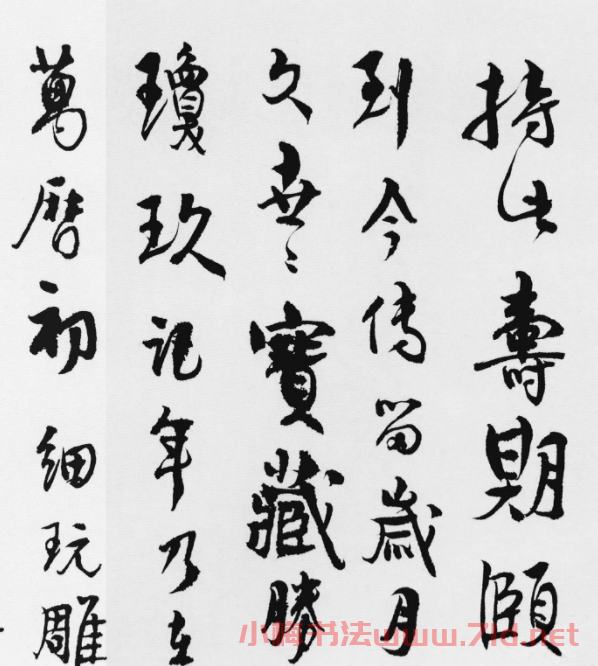 持此壽期頤
到今傳留歲月
久世〻寶藏勝
瓊玖記年乃在
萬曆初細玩雕
小楷书法www.7ld.net